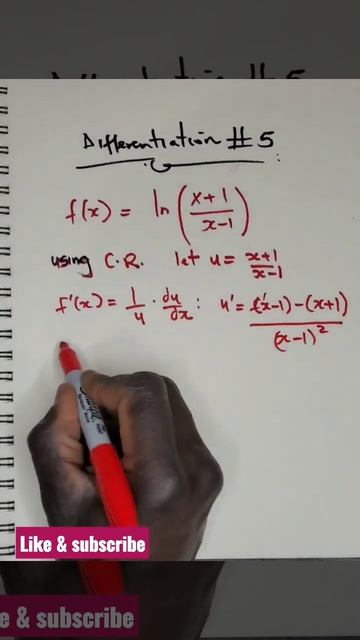 Differentiation #5
f(x) = ln(x+1/x-1)
using C.R. let u = x+1/x-1
f'(x) = 1/u · du/dx : u' = (x-1)-(x+1)/(x-1)²
Sharpie
Like & subscribe
e & subscribe